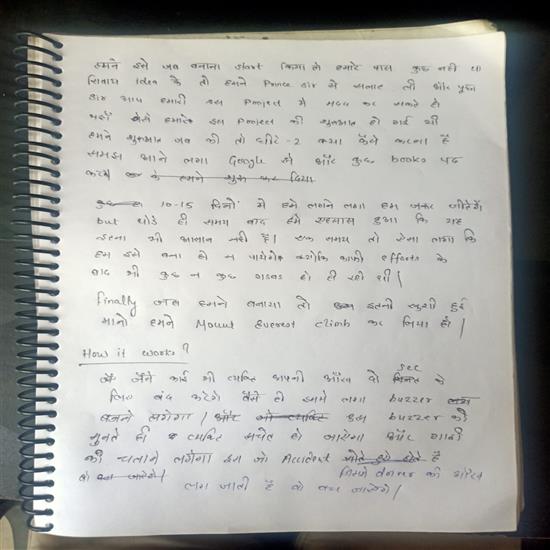 हमने इसे जब बनाना start किया तो हमारे पास कुछ नहीं था
सिवाय Idea के तो हमने Prince sir से सलाह ली और पूछा
sir आप हमारी इस Project में मदद कर सकते हो
यहाँ से हमारे इस Project की शुरुआत हो गई थी
हमने शुरुआत जब की तो धीरे-2 क्या कैसे करना है
समझ आने लगा Google से और कुछ books पढ़
कर के हमने शुरू कर दिया
10-15 दिनों में हमें लगने लगा हम जरूर जीतेंगे
but थोड़े ही समय बाद हमें एहसास हुआ कि यह
इतना भी आसान नहीं है। एक समय तो ऐसा लगा कि
हम इसे बना ही न पायेंगे क्योंकि काफी efforts के
बाद भी कुछ न कुछ गडबड हो ही रही थी।
Finally जब हमने बनाया तो इतनी खुशी हुई
मानो हमने Mount Everest climb कर लिया हो।
How it works?
जैसे कोई भी व्यक्ति अपनी आँख दो sec के
लिए बंद करेगा वैसे ही इसमें लगा buzzer
बजने लगेगा। और जो व्यक्ति इस buzzer को
सुनते ही व्यक्ति सचेत हो जाएगा और गाडी
को चलाने लगेगा इस जो Accident होते है
जिसमें driver की आँख
लग जाती है वो बच जायेंगे।